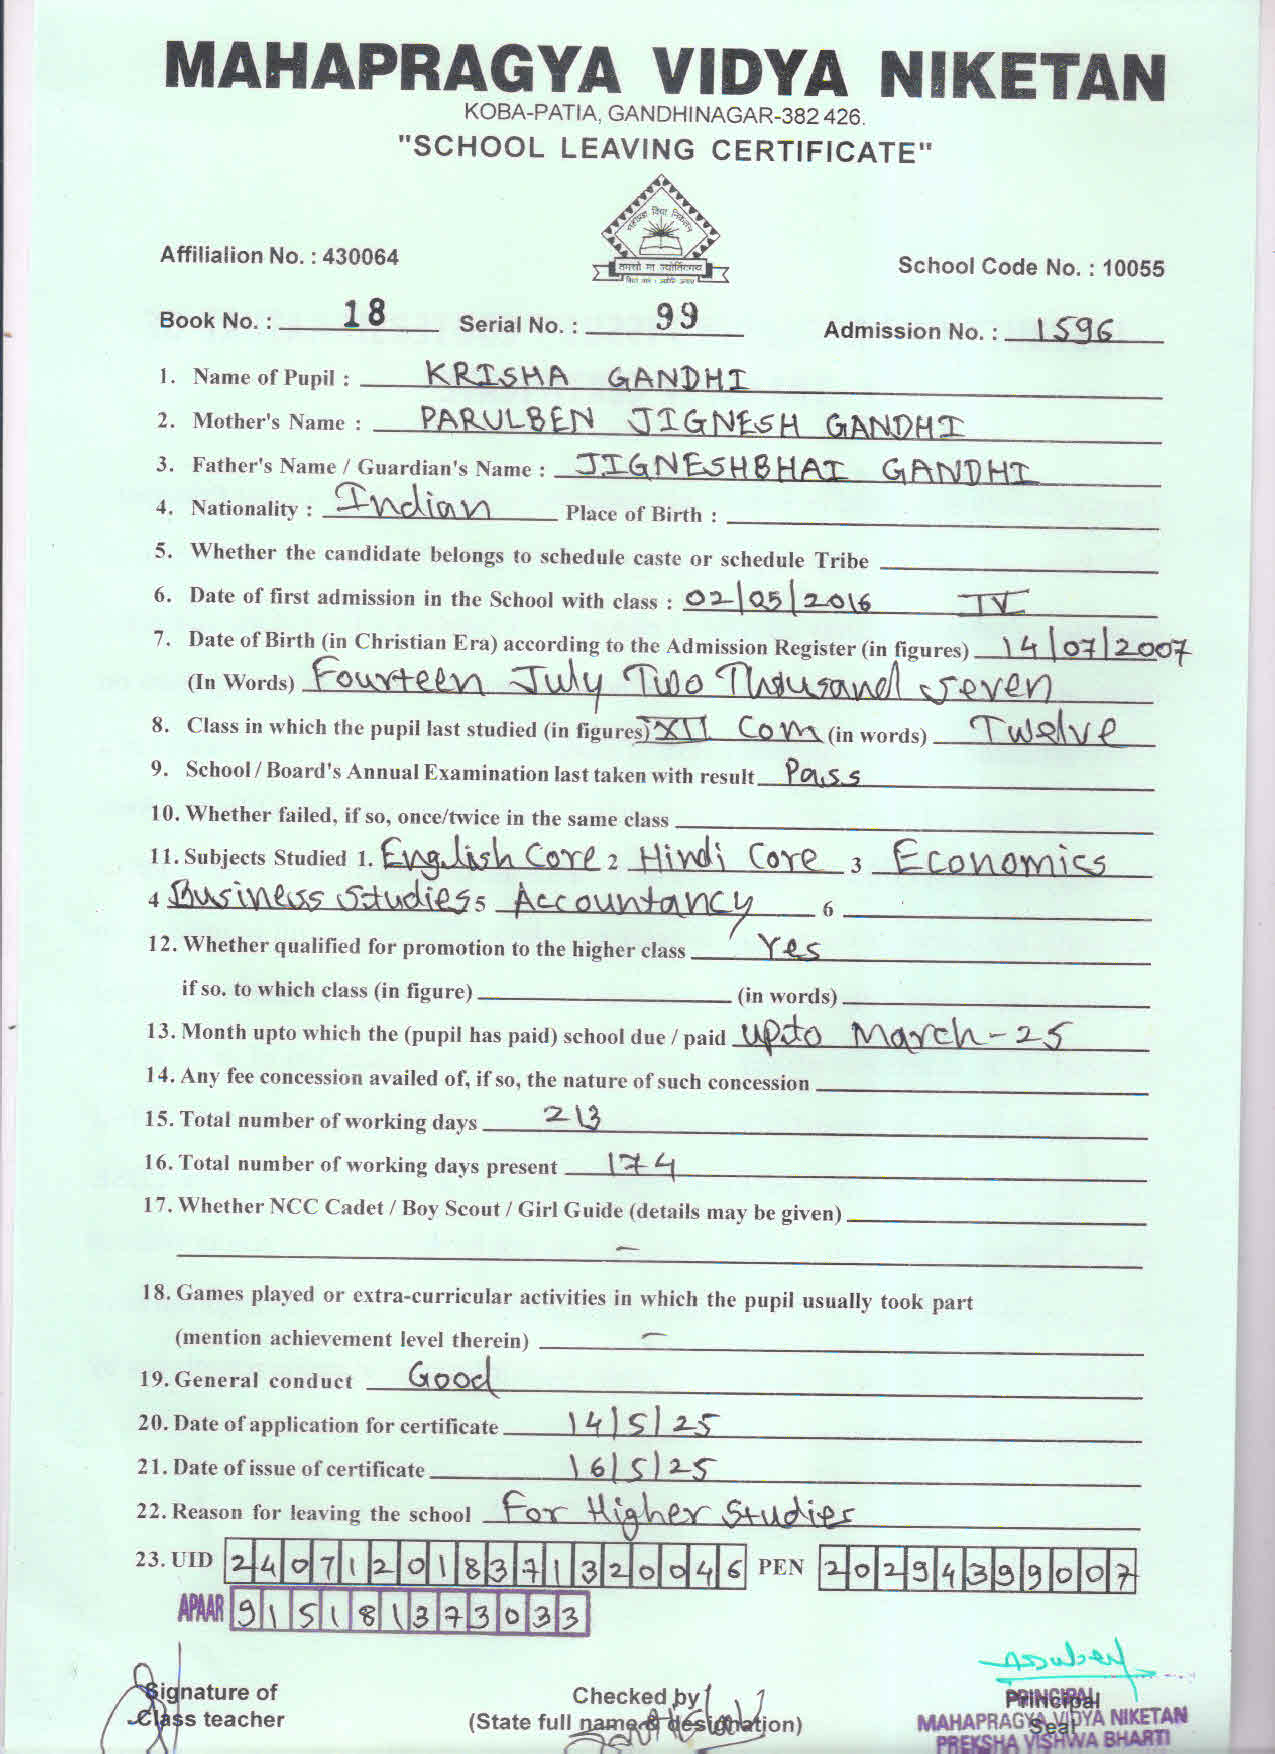 MAHAPRAGYA VIDYA NIKETAN
KOBA-PATIA, GANDHINAGAR-382 426.
"SCHOOL LEAVING CERTIFICATE"
महाप्रज्ञ विद्या निकेतन
तमसो मा ज्योतिर्गमय
Affilialion No. : 430064
School Code No. : 10055
Book No. : 18 Serial No. : 99 Admission No. : 1596
1. Name of Pupil : KRISHA GANDHI
2. Mother's Name : PARULBEN JIGNESH GANDHI
3. Father's Name / Guardian's Name : JIGNESHBHAI GANDHI
4. Nationality : Indian Place of Birth :
5. Whether the candidate belongs to schedule caste or schedule Tribe
6. Date of first admission in the School with class : 02/05/2016 IV
7. Date of Birth (in Christian Era) according to the Admission Register (in figures) 14/07/2007
(In Words) Fourteen July Two Thousand Seven
8. Class in which the pupil last studied (in figures) XII Com (in words) Twelve
9. School / Board's Annual Examination last taken with result Pass
10. Whether failed, if so, once/twice in the same class
11. Subjects Studied 1. English Core 2 Hindi Core 3 Economics
4 Business Studies 5 Accountancy 6
12. Whether qualified for promotion to the higher class Yes
if so. to which class (in figure) (in words)
13. Month upto which the (pupil has paid) school due / paid upto March-25
14. Any fee concession availed of, if so, the nature of such concession
15. Total number of working days 213
16. Total number of working days present 174
17. Whether NCC Cadet / Boy Scout / Girl Guide (details may be given)
-
18. Games played or extra-curricular activities in which the pupil usually took part
(mention achievement level therein) -
19. General conduct Good
20. Date of application for certificate 14/5/25
21. Date of issue of certificate 16/5/25
22. Reason for leaving the school For Higher Studies
23. UID 240712018371320046 PEN 20294399007
APAAR 915181373033
Signature of
Class teacher
Checked by
(State full name & designation)
Principal
Seal
PRINCIPAL
MAHAPRAGYA VIDYA NIKETAN
PREKSHA VISHWA BHARTI